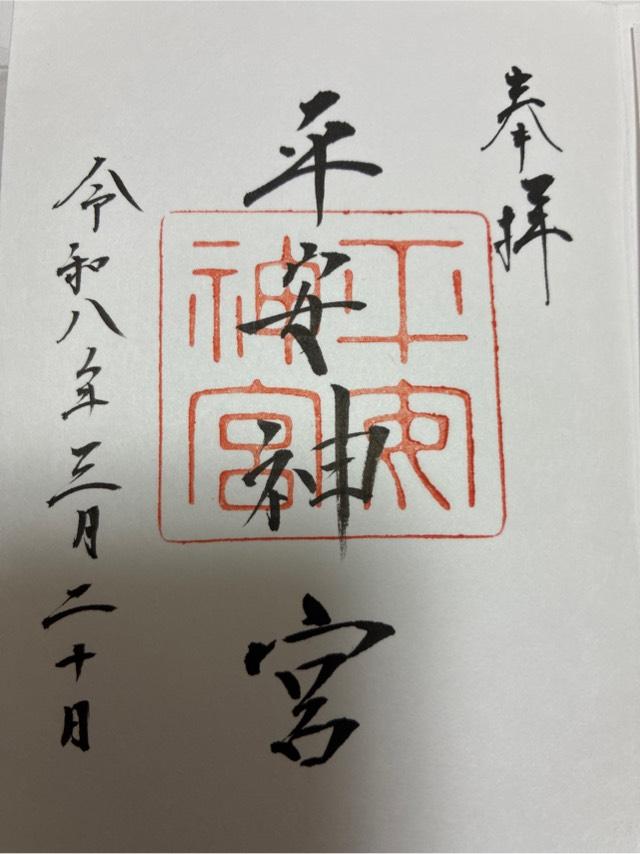 奉拝
平安神宮
平安神宮
令和八年三月二十日